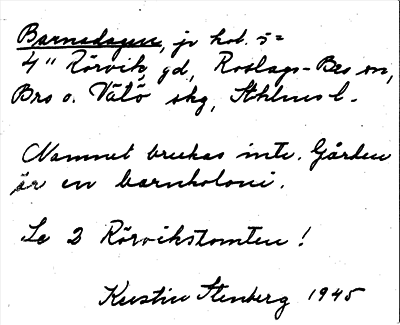 Barnedagen, jr kat. 5=
4" Rörvik, gd, Roslags-Bro sn,
Bro o. Vätö skg, Sthlms l.
Namnet brukas inte. Gården
är en barnkoloni.
Se 2 Rörvikstomten!
Kerstin Stenberg 1945